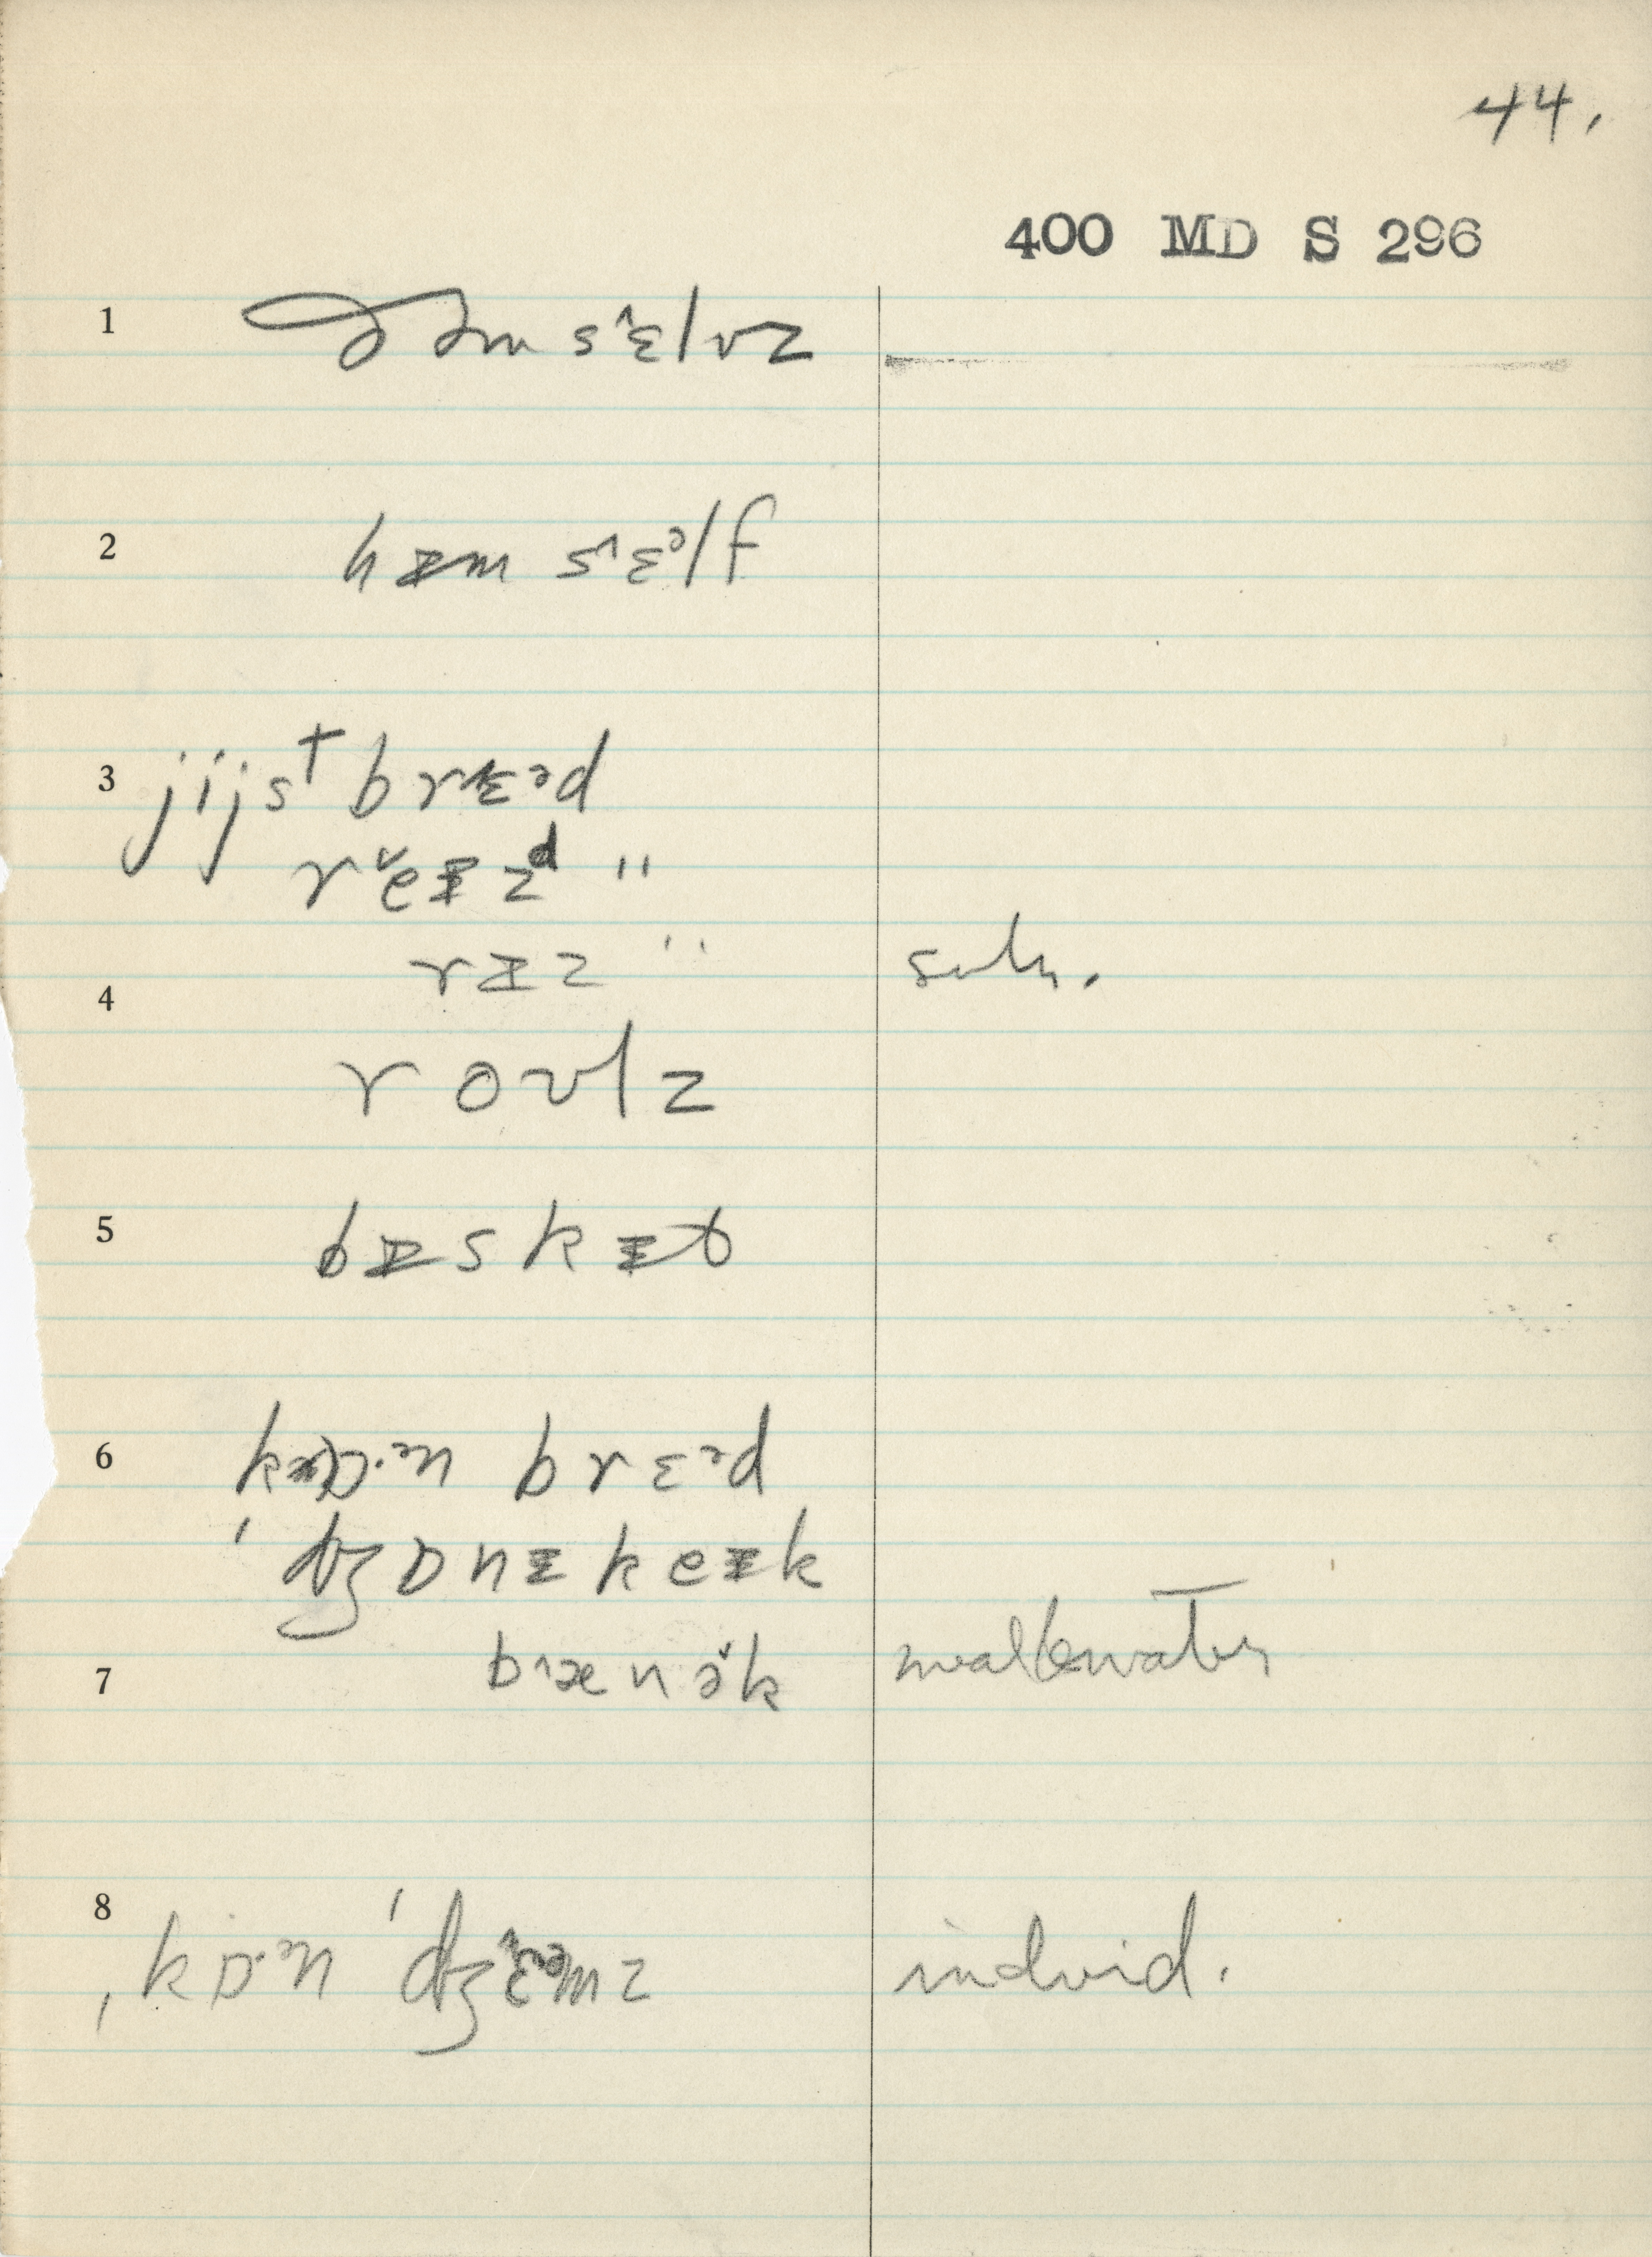 44.
400 MD S 296
1 ðəm s˄ɛlvz
2 hɪm s˄ɛᵊlf
3 jijsᵗ brɛᵊd
r˅eɪzᵈ "
rɪz "
4
roʊlz
5 bɪskɪt
6 kɒ·ᵊn brɛᵊd
ˈdʒɒnɪ keɪk
7 b˄ænə˅k mealLwater
8 ˌkɒ·ᵊn ˈdʒ˄ɛᵊmz individ.